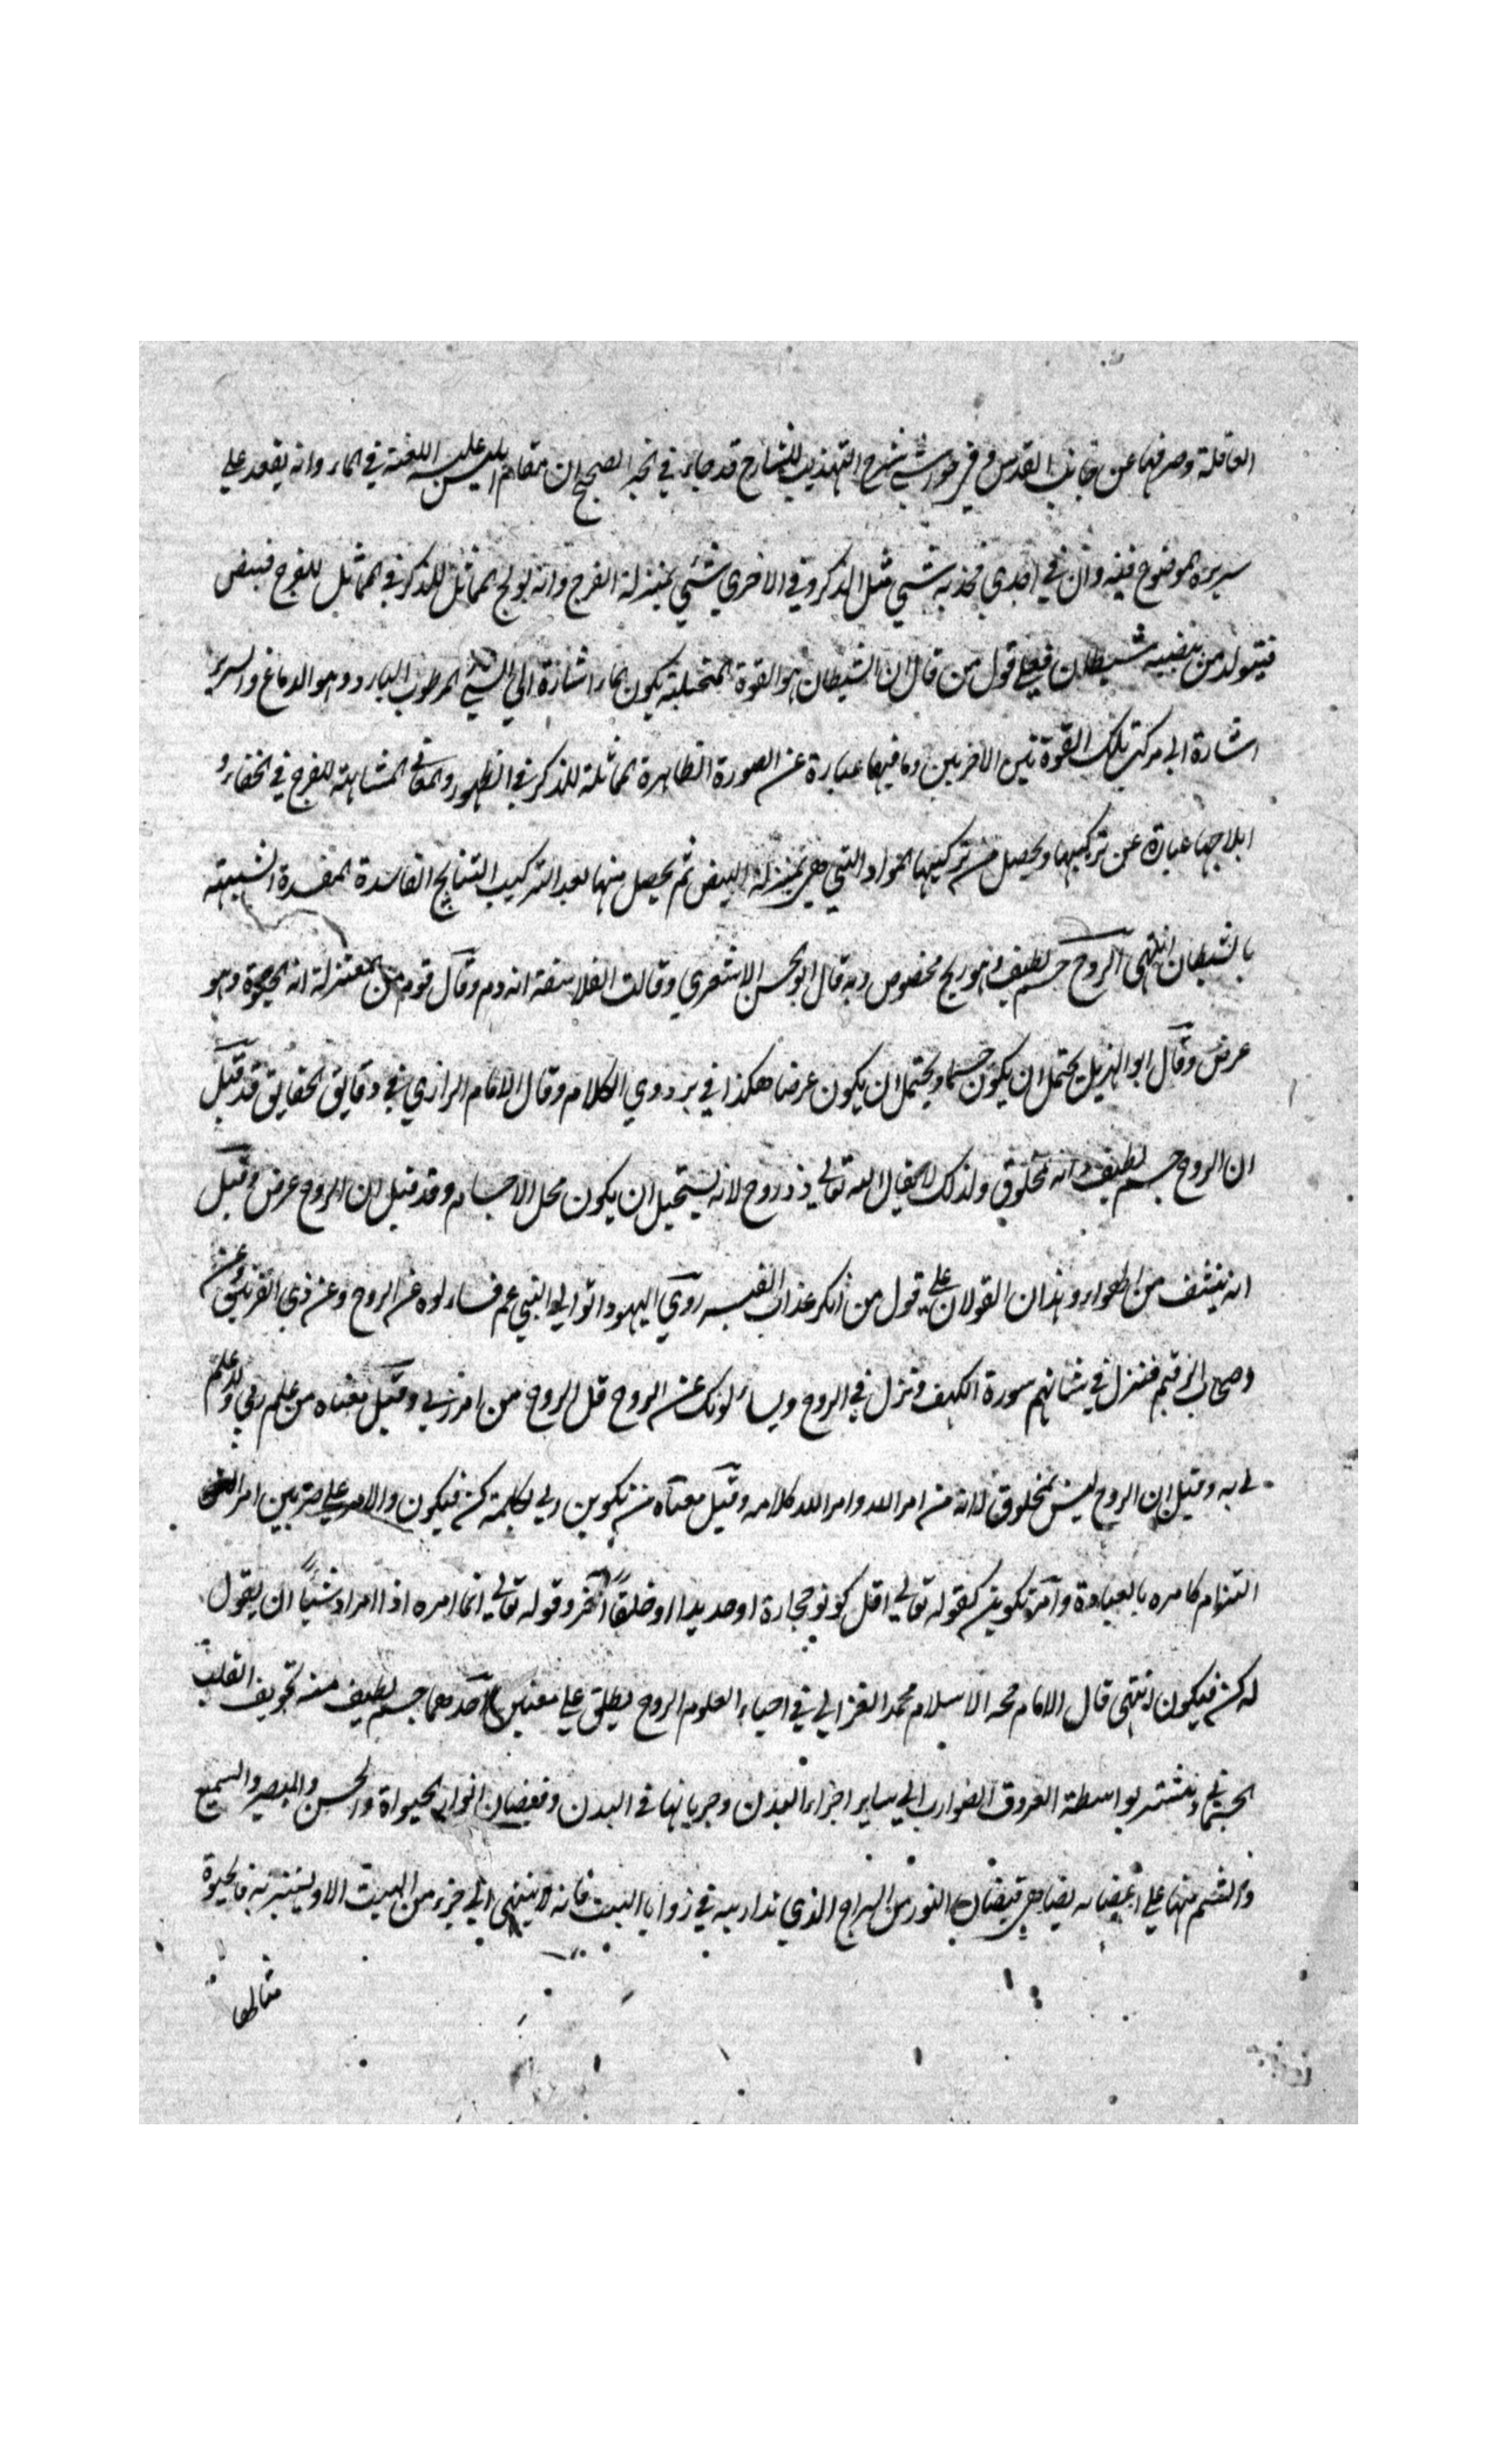 العاقلة وصرفها عن جانب القدس وفي حواشي شرح التهذيب للشارح قد جاء في الخبر الصحيح ان مقام ابليس عليه اللعنة في الماء وانه يقعد على
سريره الموضوع فيه وان في احدي فخذيه شيئ مثل الذكر وفي الاخري شيئ بمنزلة الفرج وانه يولج المماثل للذكر في المماثل للفرج فيبيض
فيتولد من بيضيه شيطان فعلي قول من قال ان الشيطان هو القوة المتخيلة يكون الماء اشارة الي الشيئ المرطوب البارد وهو الدماغ والسرير
اشارة الي مركب تلك القوة تين الاخريين وما فيها عبارة عن الصورة الظاهرة المماثلة للذكر في الظهور والمعاني المشابهة للفرج في الخفاء و
ايلاجها عبارة عن تركيبها ويحصل من تركيبها المواد التي هي بمنزلة البيض ثم يحصل منها بعد التركيب النتايج الفاسدة المفسدة الشبيهة
بالشيطان انتهي الروح جسم لطيف وهو ريح مخصوص وبه قال ابو الحسن الاشعري وقالت الفلاسفة انه دم وقال قوم من المعتزلة انه الحيوة وهو
عرض وقال ابو الهذيل يحتمل ان يكون جسما ويحتمل ان يكون عرضا هكذا في بزدوي الكلام وقال الامام الرازي في دقايق الحقايق قد قيل
ان الروح جسم لطيف وانه مخلوق ولذلك لا يقال الله تعالي ذو روح لانه يستحيل ان يكون محل الاجسام وقد قيل ان الروح عرض وقيل
انه ينشف من الهواء وهذان القولان علي قول من انكر عذاب القبر روي اليهود اتوا الي النبي عم فساءلوه عن الروح وعن ذي القرنين وعن
اصحاب الرقيم فنزل في شانهم سورة الكهف ونزل في الروح ويساءلونك عن الروح قل الروح من امر ربي وقيل معناه من علم ربي ولا علم
لي به وقيل ان الروح ليس بمخلوق لانه من امر الله وامر الله كلامه وقيل معناه من تكوين ربي لكلمة كن فيكون والامر علي ضربين امر
التزام كامره بالعبادة وامر تكوين كقوله تعالي اقل كونو حجارة او حديدا او خلقا اخر وقوله تعالي انما امره اذا اراد شيئا ان يقول
له كن فيكون انتهي قال الامام حجة الاسلام محمد الغزالي في احياء العلوم الروح يطلق علي معنيين احدهما جسم لطيف منبه تجويف القلب
الجسماني وينتشر بواسطة العروق الضوارب الي ساير اجزاء البدن وجريانها في البدن وفيضان انوار الحيواة والحس والبصر والسمع
والشم منها علي اعضائه يضاهي فيضان النور من السراج الذي يدار به في زوايا البيت فانه لا ينتهي الي جزء من البيت الا ويستنير به فالحيوة
مثالها